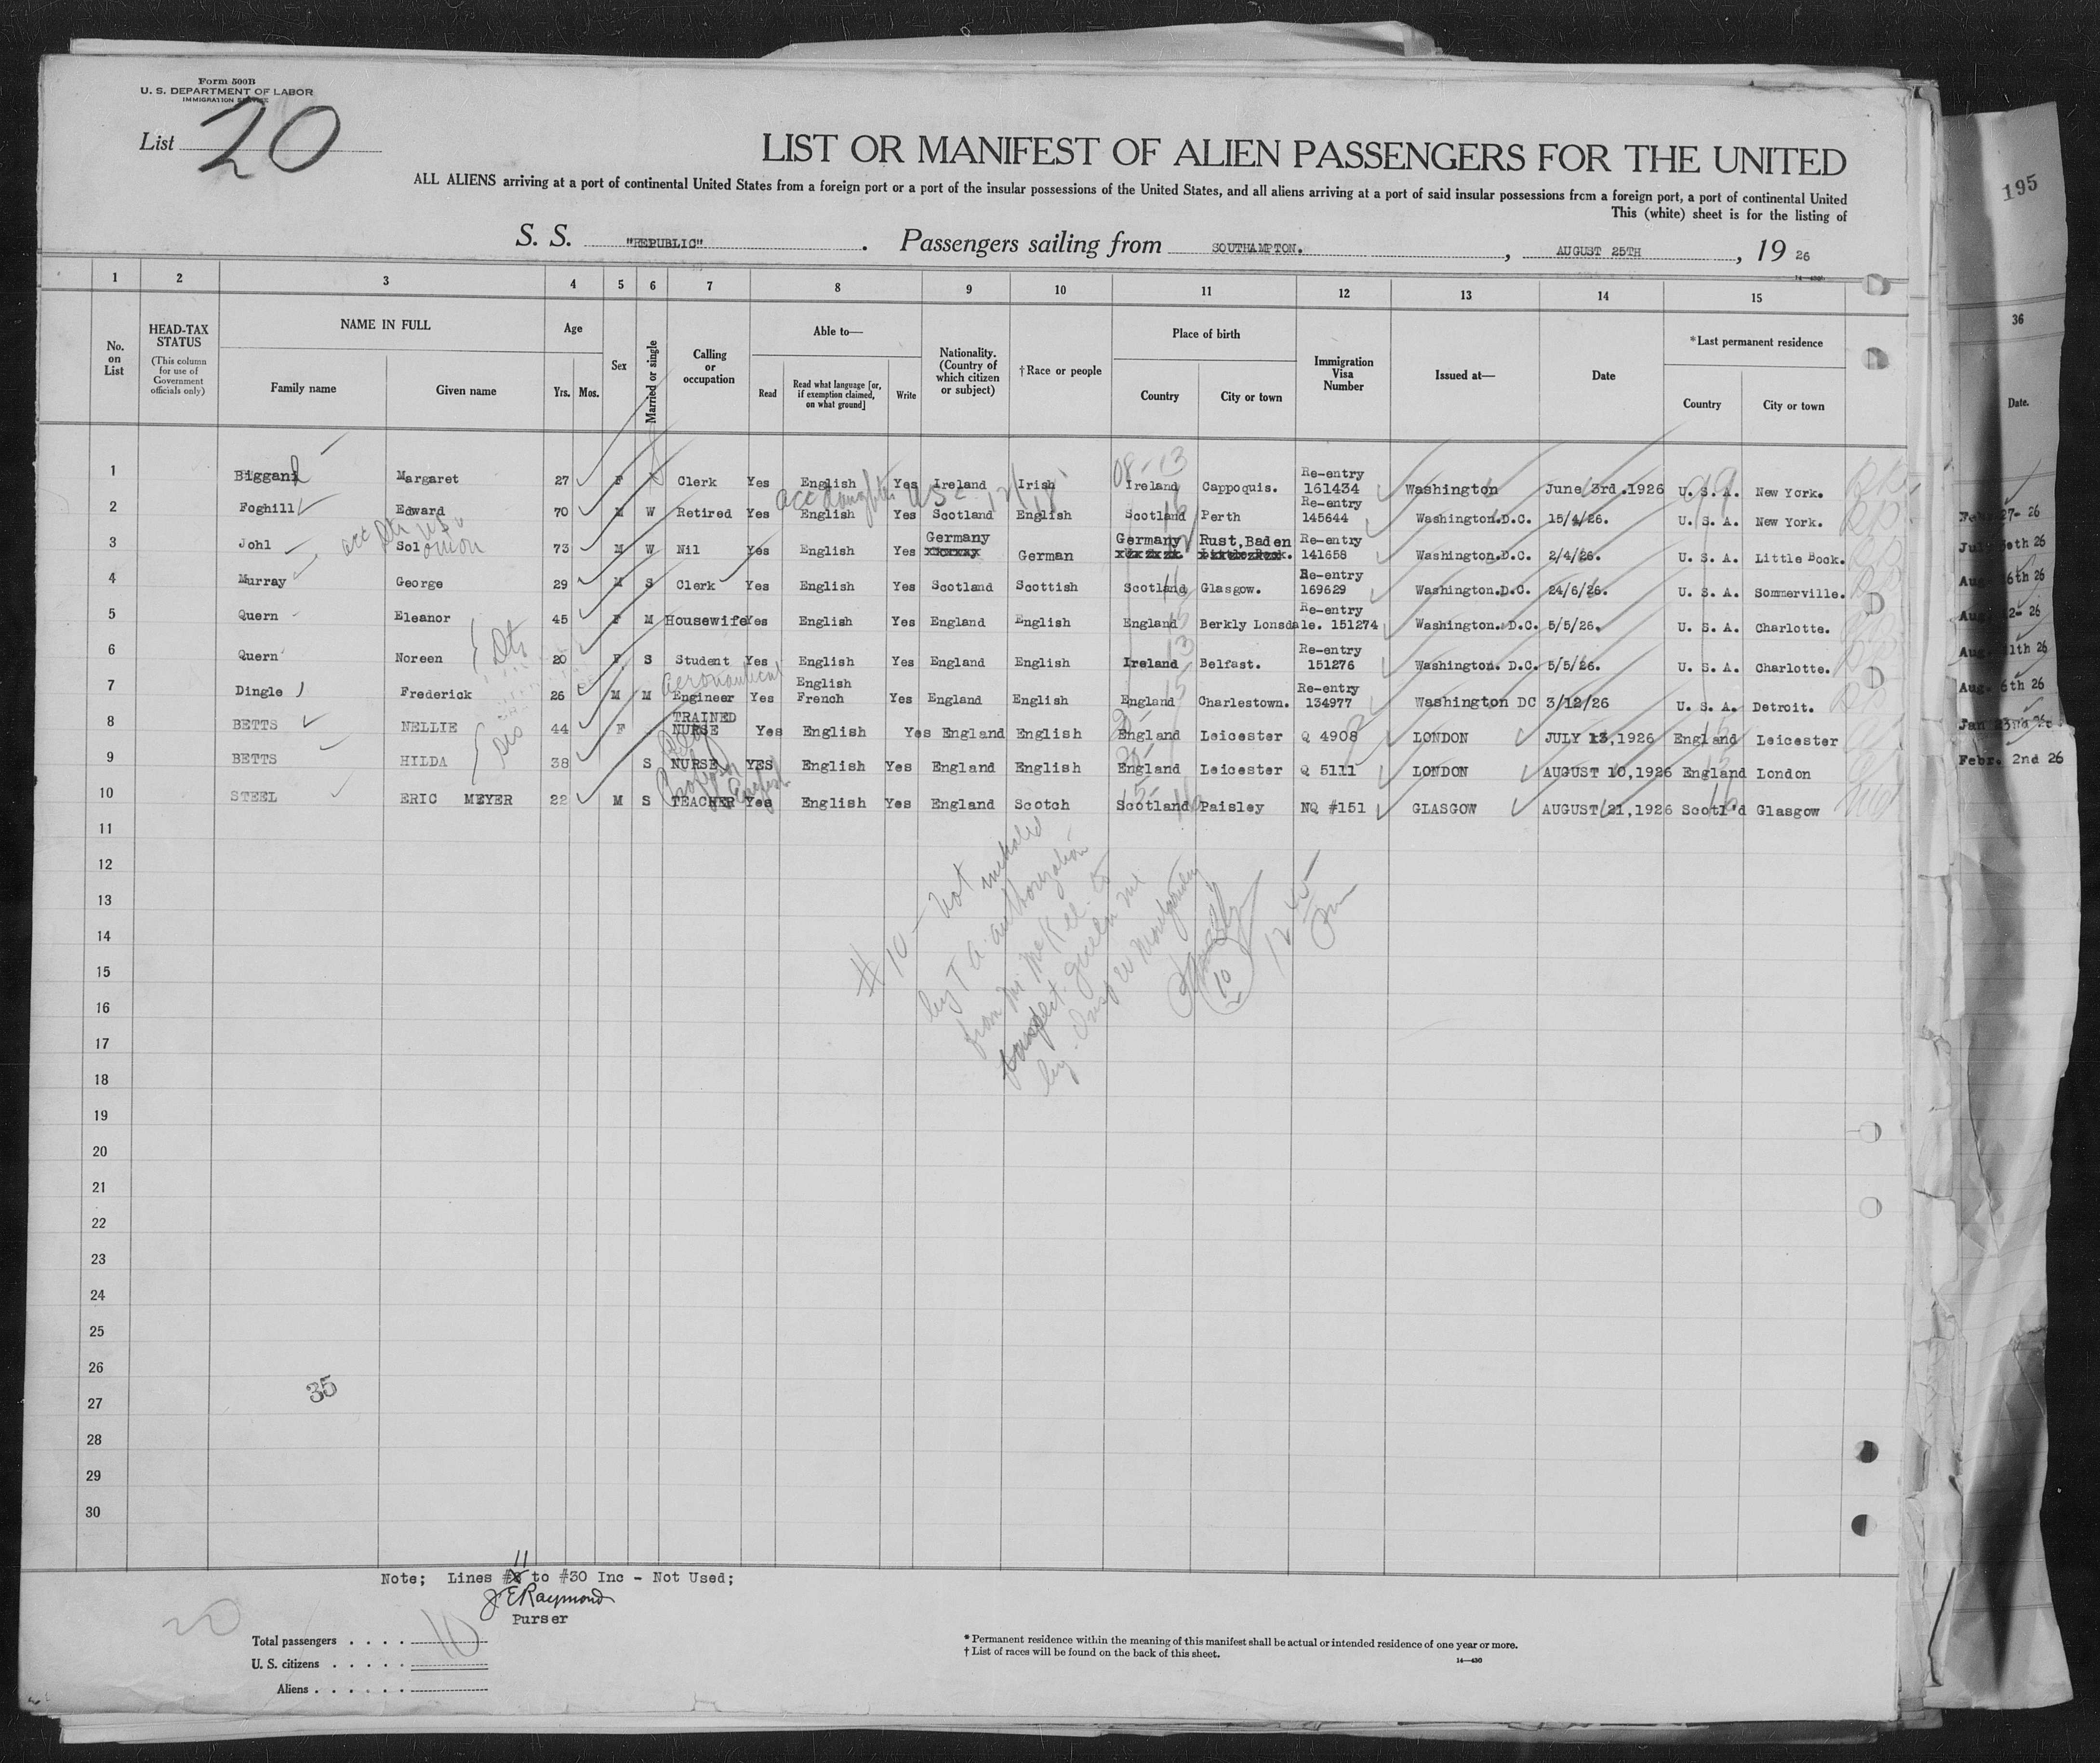 Form 500B
U. S. DEPARTMENT OF LABOR
IMMIGRATION SERVICE
List 20
LIST OR MANIFEST OF ALIEN PASSENGERS FOR THE UNITED
ALL ALIENS arriving at a port of continental United States from a foreign port or a port of the insular possessions of the United States, and all aliens arriving at a port of said insular possessions from a foreign port, a port of continental United
This (white) sheet is for the listing of
S. S. "REPUBLIC". Passengers sailing from SOUTHAMPTON. , AUGUST 25TH , 19 26
14—430b
1 2 3 4 5 6 7 8 9 10 11 12 13 14 15
No. on List
HEAD-TAX STATUS
(This column for use of Government officials only)
NAME IN FULL
Family name Given name
Age
Yrs. Mos.
Sex
Married or single
Calling or occupation
Able to—
Read Read what language [or, if exemption claimed, on what ground] Write
Nationality. (Country of which citizen or subject)
†Race or people
Place of birth
Country City or town
Immigration Visa Number
Issued at—
Date
*Last permanent residence
Country City or town
1 Biggani Margaret 27 F Clerk Yes English Yes Ireland Irish Ireland Cappoquis. Re-entry 161434 Washington June 3rd.1926 U. S. A. New York.
08-13
99
acc daughter USC
2 Foghill Edward 70 M W Retired Yes English Yes Scotland English Scotland Perth Re-entry 145644 Washington.D.C. 15/4/26. U. S. A. New York.
acc Dtr USC
3 Johl Solomon 73 M W Nil Yes English Yes Germany German Germany Rust,Baden Re-entry 141658 Washington.D.C. 2/4/26. U. S. A. Little Bock.
4 Murray George 29 M S Clerk Yes English Yes Scotland Scottish Scotland Glasgow. Re-entry 169629 Washington.D.C. 24/6/26. U. S. A. Sommerville.
5 Quern Eleanor 45 F M Housewife Yes English Yes England English England Berkly Lonsdale. Re-entry 151274 Washington. D.C. 5/5/26. U. S. A. Charlotte.
Dtr
6 Quern Noreen 20 F S Student Yes English Yes England English Ireland Belfast. Re-entry 151276 Washington. D.C. 5/5/26. U. S. A. Charlotte.
7 Dingle Frederick 26 M M Aeronautical Engineer Yes English French Yes England English England Charlestown. Re-entry 134977 Washington DC 3/12/26 U. S. A. Detroit.
8 BETTS NELLIE 44 F TRAINED NURSE Yes English Yes England English England Leicester Q 4908 LONDON JULY 13,1926 England Leicester
sis
9 BETTS HILDA 38 S NURSE YES English Yes England English England Leicester Q 5111 LONDON AUGUST 10,1926 England London
10 STEEL ERIC MEYER 22 M S TEACHER Yes English Yes England Scotch Scotland Paisley NQ #151 GLASGOW AUGUST 21,1926 Scotl'd Glasgow
11
12
13
14
15
16
17
18
19
20
21
22
23
24
25
26
27
28
29
30
#10 - Not included
by T A authorization
from Mr. McKee to
given me
by Insp
10
12 45 Pm
35
11
Note; Lines # to #30 Inc - Not Used;
J E Raymond
Purser
20
Total passengers . . . . 10
U. S. citizens . . . . .
Aliens . . . . . .
* Permanent residence within the meaning of this manifest shall be actual or intended residence of one year or more.
† List of races will be found on the back of this sheet.
14—430
195
36
Date.
Feb. 27- 26
Aug. 6th 26
Aug. 11th 26
Aug. 6th 26
Febr. 2nd 26